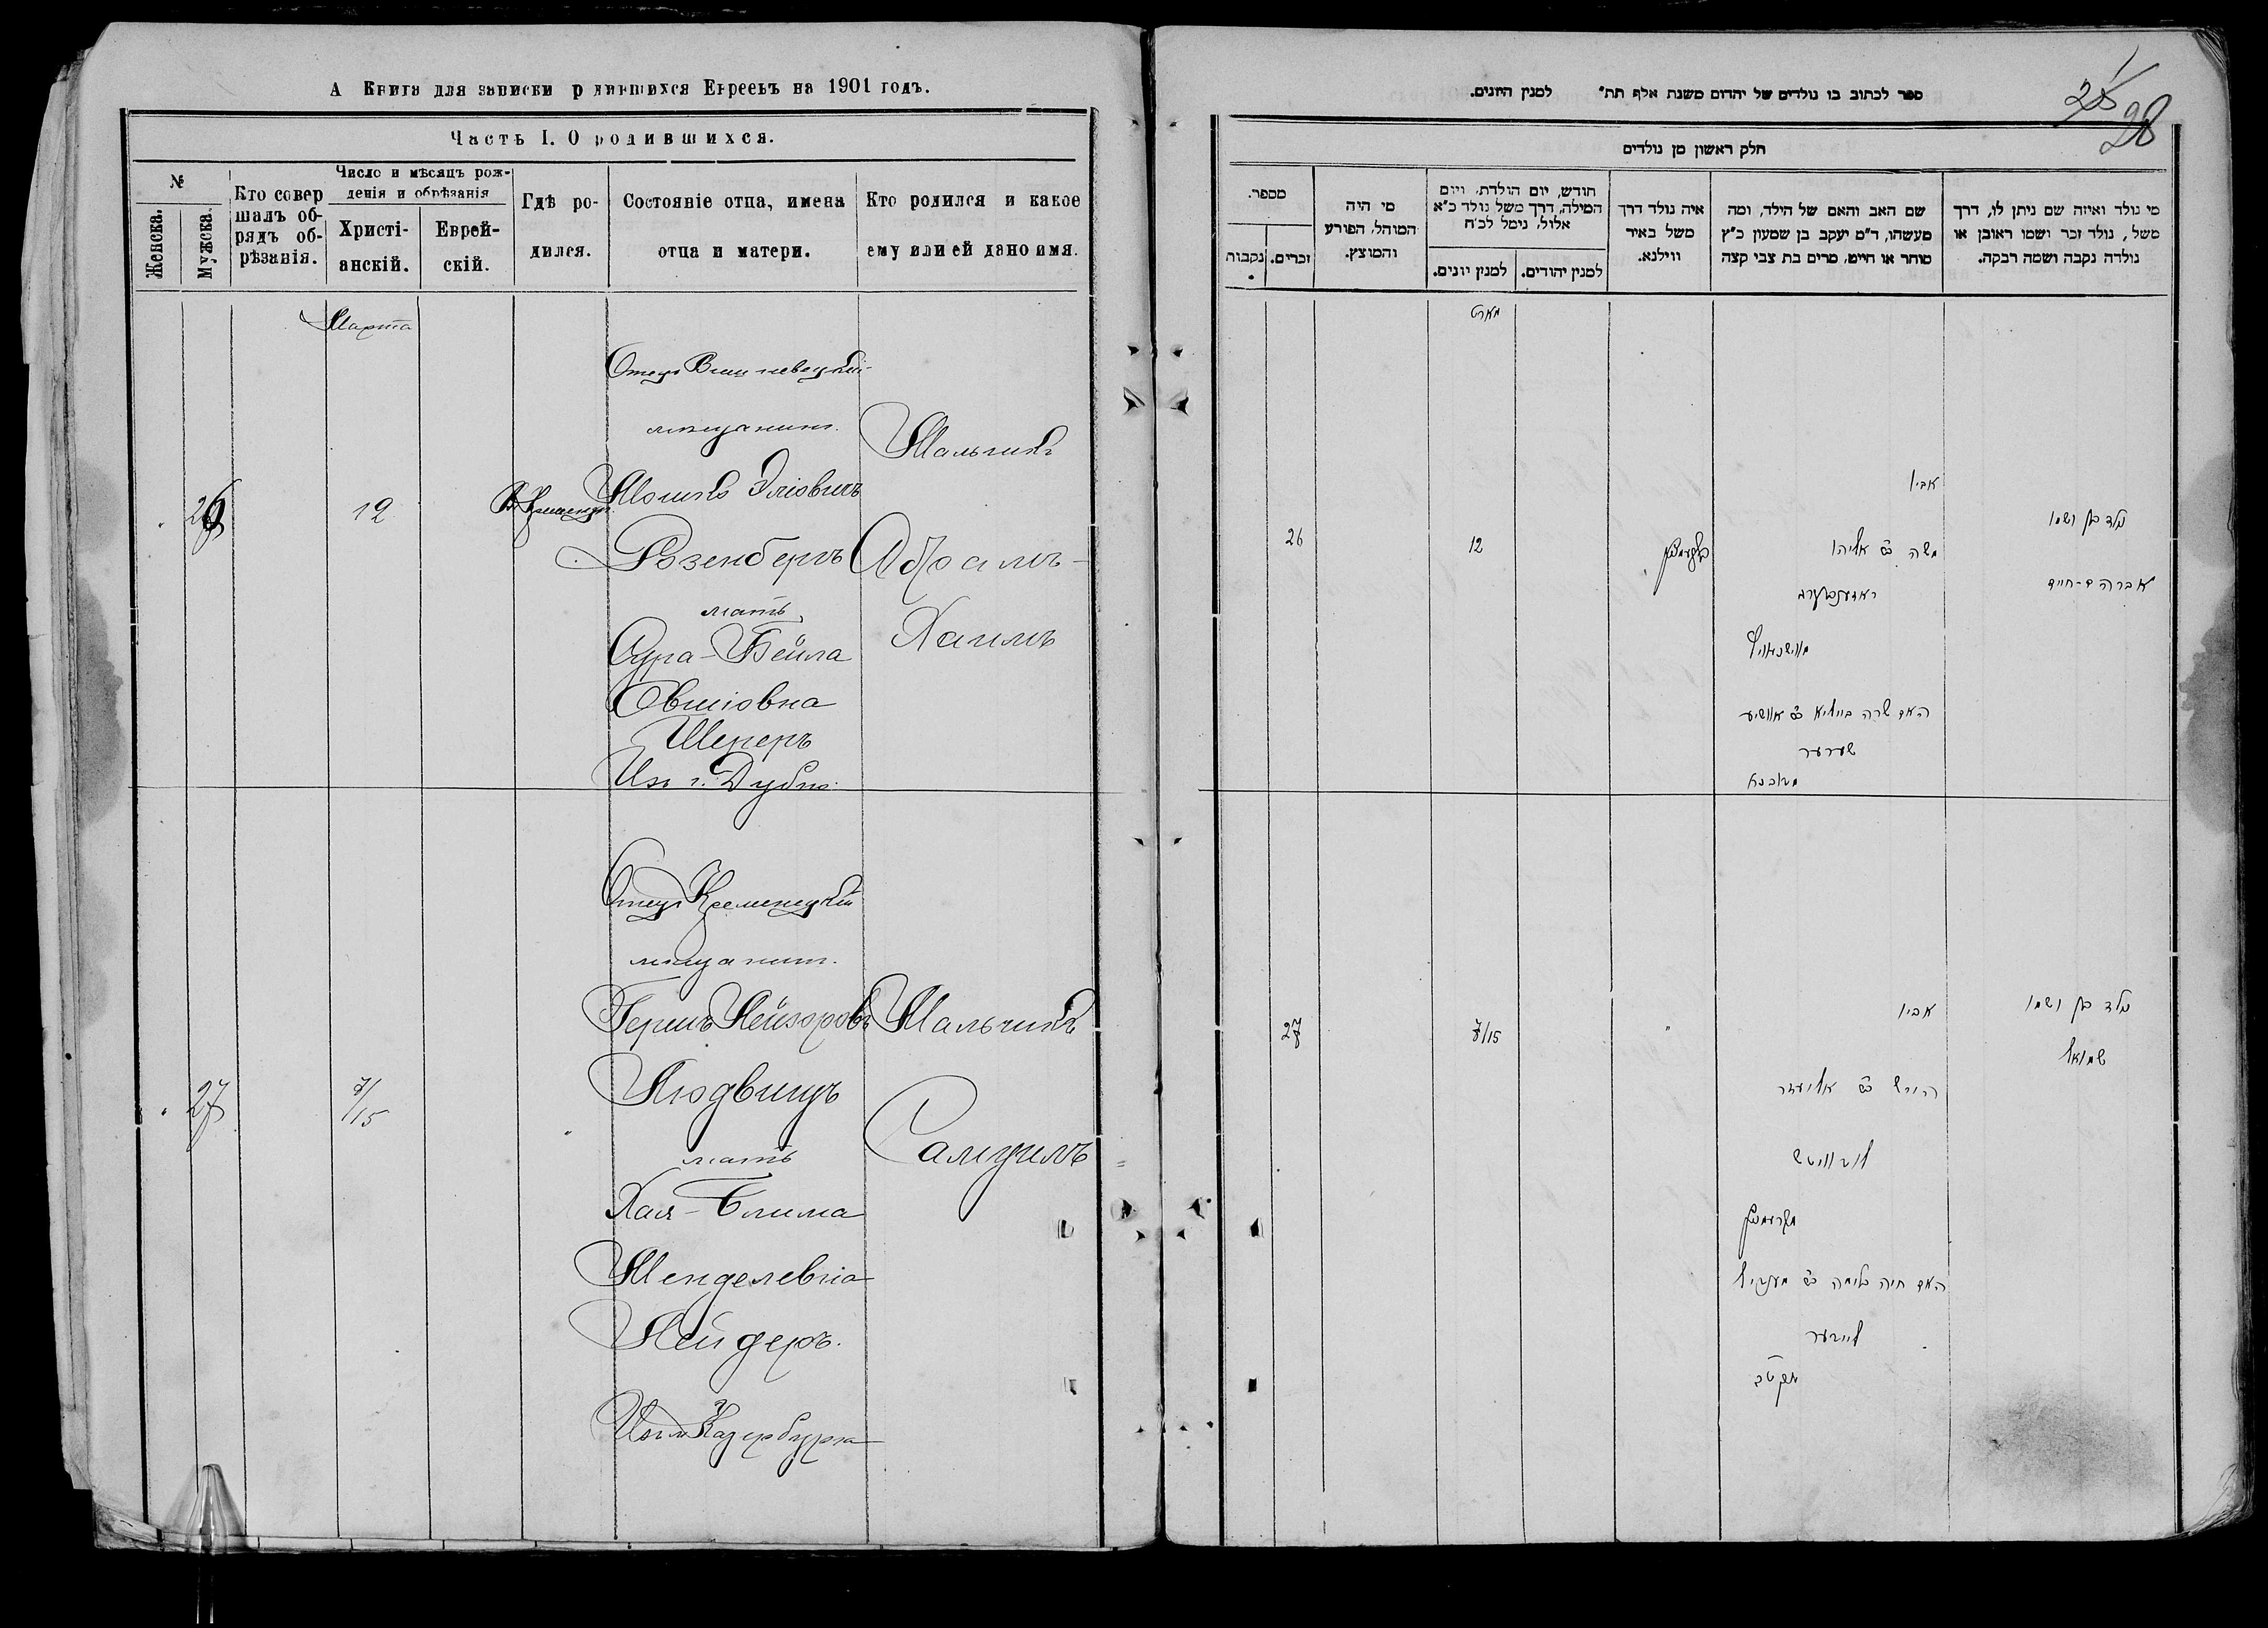 А Книга для записки р дившихся Евреевъ на 1901 годъ.
Часть I. О родившихся.
№
Женска.
Мужска.
Кто совер
шалъ об-
рядъ об-
рѣзанія.
Число и мѣсяцъ рож-
денія и обрѣзанія
Христі-
анскій.
Еврей-
скій.
Гдѣ ро-
дился.
Состояніе отца, имена
отца и матери.
Кто родился и какое
ему или ей дано имя.
Марта
26
12
Отецъ Вишневецкій
мѣщанин.
Мошко Эліовичъ
Розенбергъ
мать
Сура-Бейла
Овшіовна
Шереръ
Изъ г. Дубно.
Мальчикъ
Абрамъ-
Хаимъ
27
7/15
"
Отецъ Кременецкій
мѣщанин.
Гершъ Лейзоровъ
Людвищъ
мать
Хая-Блима
Менделевна
Лейдеръ.
Мальчикъ
Самуилъ
ספר לכתוב בו נולדים של יהדום משנת אלף תת" למנין היונים.
28
חלק ראשון מן נולדים
מספר.
נקבות
זכרים.
מי היה
המוהל, הפורע
והמוצץ.
חודש, יום הולדת, ויום
המילה, דרך משל נולד כ"א
אלול, נימל לכ"ח
למנין יונים.
למנין יהודים.
איה נולד דרך
משל באיר
ווילנא.
שם האב והאם של הילד, ומה
מעשהו, ד"מ יעקב בן שמעון כ"ץ
סוחר או חייט, מרים בת צבי קצה
מי נולד ואיזה שם ניתן לו, דרך
משל, נולד זכר ושמו ראובן או
נולדה נקבה ושמה רבקה.
מארט
26
12
אביו
משה ב"ר אליהו
ראזענבערג
האם שרה ביילא ב"ר אוושיע
שערער
מדובנא
נולד בן ושמו
אברהם-חיים
27
7/15
"
אביו
הירש ב"ר אליעזר
לודוויטש
מקרעמניץ
האם חיה בלימה ב"ר מענדיל
ליידער
נולד בן ושמו
שמואל